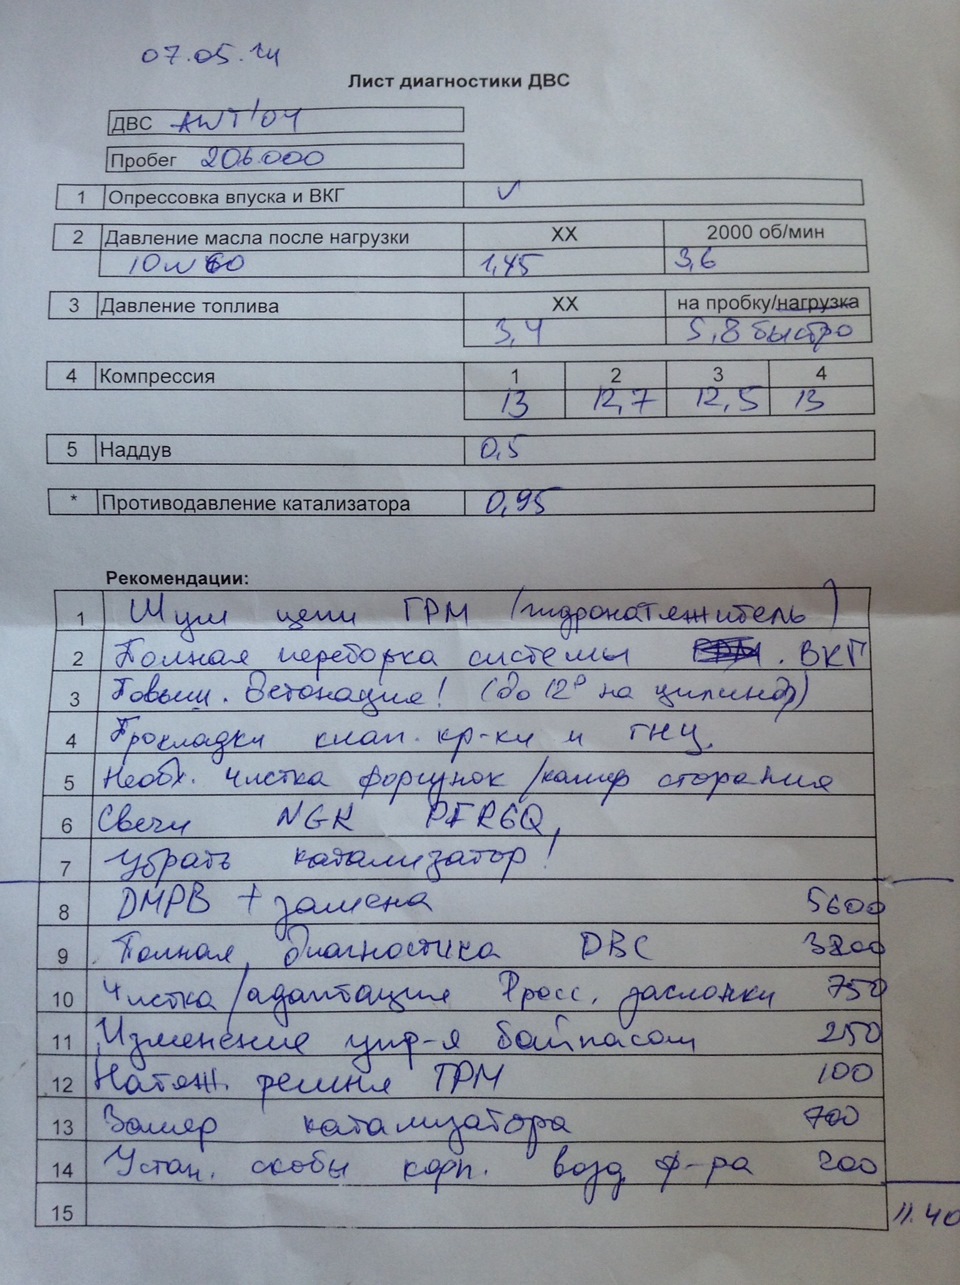 07.05.14
Лист диагностики ДВС
ДВС AWT'04
Пробег 206.000
1 Опрессовка впуска и ВКГ ✓
2 Давление масла после нагрузки ХХ 2000 об/мин
10w60 1,45 3,6
3 Давление топлива ХХ на пробку/нагрузка
3,4 5,8 быстро
4 Компрессия 1 2 3 4
13 12,7 12,5 13
5 Наддув 0,5
* Противодавление катализатора 0,95
Рекомендации:
1 Шум цепи ГРМ (гидронатяжитель)
2 Полная переборка системы . ВКГ
3 Повыш. Детонация! (до 12° на цилиндр)
4 Прокладки клап. кр-ки и ГНЦ.
5 Необх. чистка форсунок /камер сгорания
6 Свечи NGK PFR6Q,
7 Убрать катализатор!
8 DМРВ + замена 5600
9 Полная диагностика DВС 3800
10 Чистка/адаптация Дросс. заслонки 750
11 Изменение упр-я байпасом 250
12 Натяж. ремня ГРМ 100
13 Замер катализатора 700
14 Устан. скобы корп. возд ф-ра 200
15
11.40